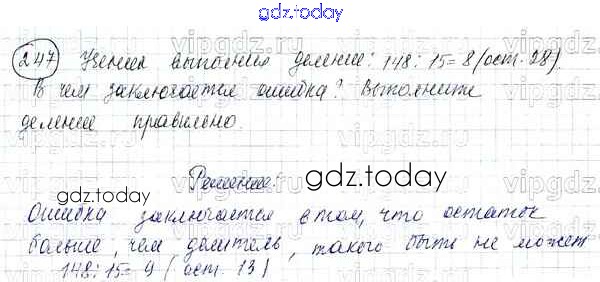 gdz.today
247 Ученик выполнил деление: 148 : 15 = 8 (ост. 28).
В чем заключается ошибка? Выполните
деление правильно.
Решение:
gdz.today
gdz.today
Ошибка заключается в том, что остаток
больше, чем делитель, такого быть не может
148 : 15 = 9 (ост. 13)